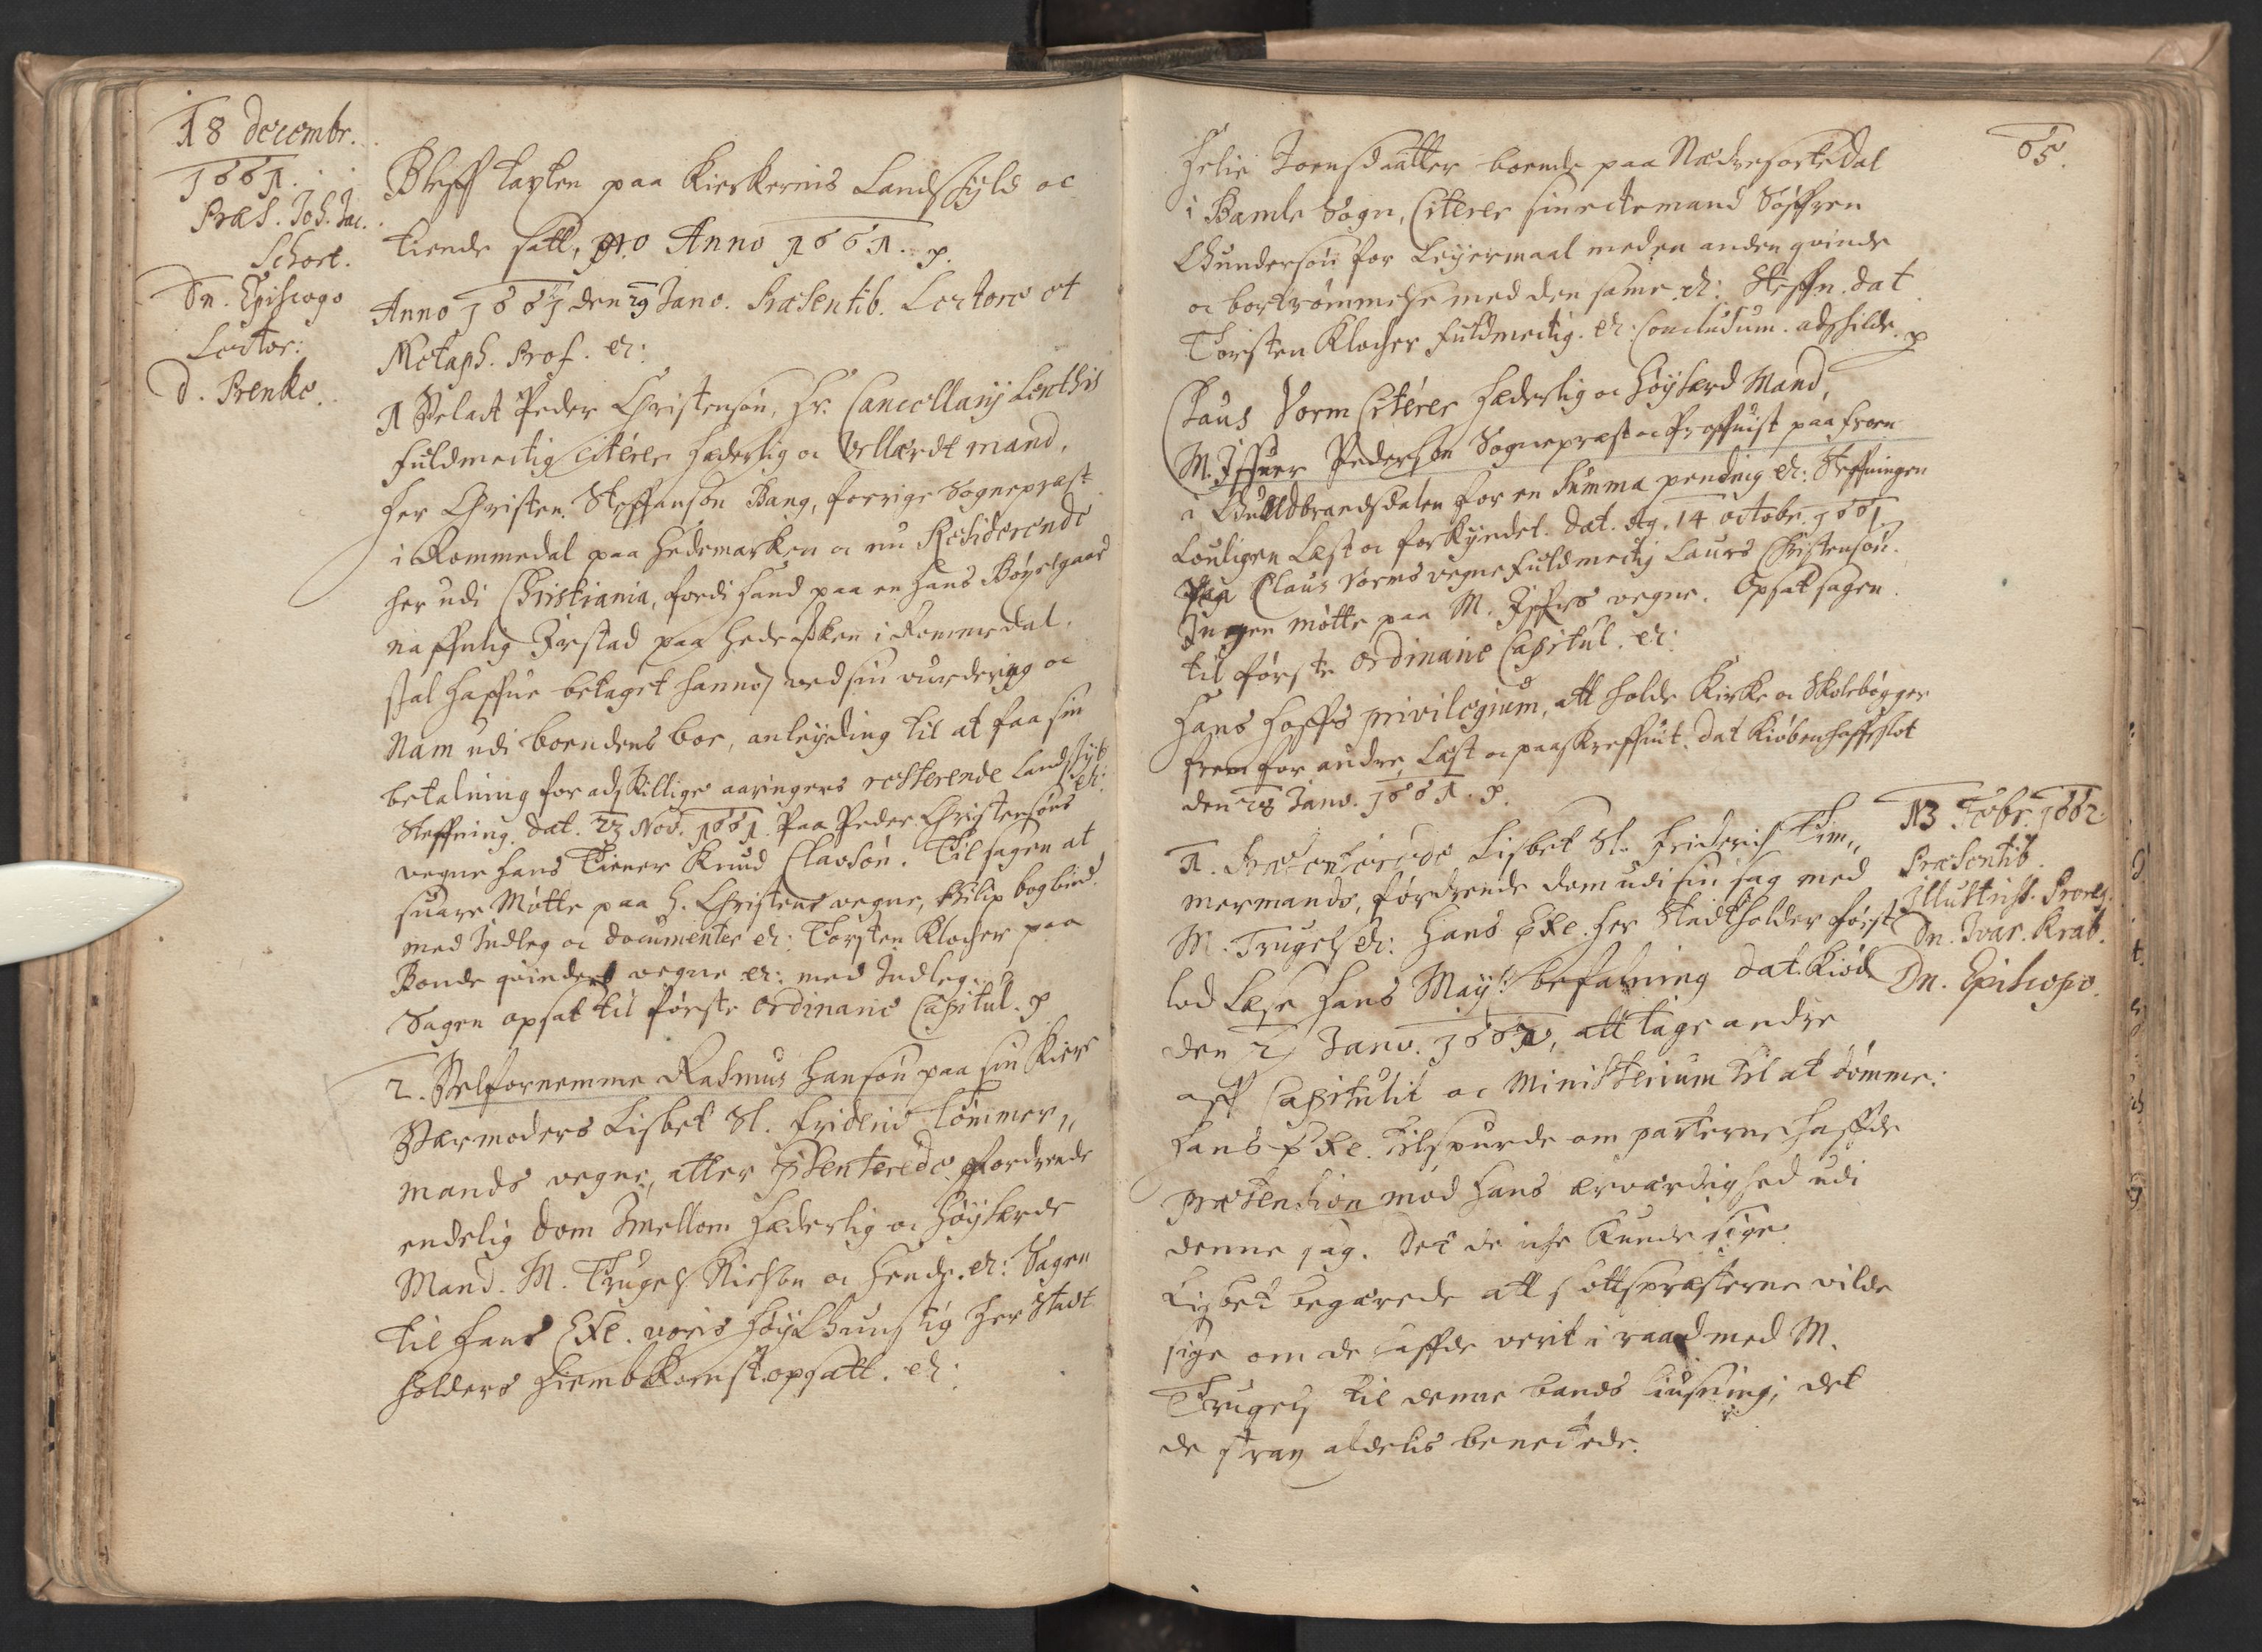 18 decembr.
1661.
Præs. Joh. Jac.
Schort.
Dn. Episcopo
Lector:
D. Brenke.
Bleff taxten paa Kierkernis Landschyld oc
tiende satt, pro Anno 1661. p.
Anno 1662 den 29 Janv. Præsentib. Lectore et
Metaph. Prof. etc:
1 Velact Peder Christensøn, Hr. Cancellarij Lenthis
fuldmectig citérer hæderlig oc Vellærdt mand,
Her Christen Steffensøn Bang, forrige Sognepræst
i Rommedal paa Hedemarken oc nu Residerende
her udi Christiania, fordi hand paa en hans Bøyelgaard
naffnlig Irstad paa Hedemarken i Rommedal,
skal haffue betaget hannom ved sin vurdering oc
Nam udi boendens boe, anleyding til at faa sin
betalning for adskillige aaringers resterende Landskyld
Steffning. Dat. 23 Nov. 1661. Paa Peder Christensøns etc:
vegne hans Tiener Knud Clavsøn. Til sagen at
suare Møtte paa H. Christens vegne, Philip bogbind.
med Indleg oc documenter etc: Torsten Klocher paa
Bonde quindens vegne etc: med Indleg.
Sagen opsat til første ordinarie Capitul. p
2. Velfornemme Rasmus Hansøn paa sin Kiere
Værmoders Lisbet Sl. Friderich Tømmer„
mands vegne, atter præsenterede fordrende
endelig dom Imellom Hæderlig oc Høylærde
Mand. M. Trugels Nielsøn oc hende. etc: Sagen
til hans Exc. voris høygunstig her Stadt
holders hiembkomst opsatt. etc:
65.
Helie Joensdaatter boende paa Nedre
i Bamle Sogn, Citerer sin ectemand Søffren
Gundersøn for Leyermaal med en anden quinde
oc bortrømmelse med den same etc: Steffn. dat
Torsten Klocher fuldmectig. etc: Conclusum. adskilde. p
Claus Vorm Citérer Hæderlig oc Høylærd Mand,
M. Iffuer Pedersøn Sognepræst oc Proffuist paa Froen
i Guldbrandsdalen for en Summa pending etc: Steffningen
Louligen Læst oc forkyndet. Dat. Ag. 14 octobr. 1661
Paa Claus Vorms vegne fuldmectig Laurs Christensøn.
Ingen møtte paa M. Iffrs vegne. Opsat sagen
til første ordinarie Capitul. etc:
Hans Hoffs privilegium, att holde Kirke oc Skolebøgger
frem for andre Læst oc paaskreffuit. Dat Kiøbenhaffs slot
den 28 Janv. 1661. p.
13 Febr. 1662.
Præsentib.
Illustriss. Proreg.
Dn. Ivar. Krab.
Dn. Episcopo.
1. Præsenterede Lisbet Sl. Friderich Tim„
mermands, fordrende dom udi sin sag med
M. Trugels etc: Hans Exe. her Stadtholder først
lod Læse Hans May:ts befalning dat. Kiøb.
den 2 Janv. 1662, att tage andre
aff Capitulit oc Ministerium til at dømme.
Hans Exe. tilspurde om parterne haffde
prætention mod hans erværdighed udi
denne sag. Det de iche kunde sige.
Lisbet begærede att slottspræsterne vilde
sige om de haffde verit i raad med M.
Trugels til denne bands liusning; det
de strax aldelis benectede.